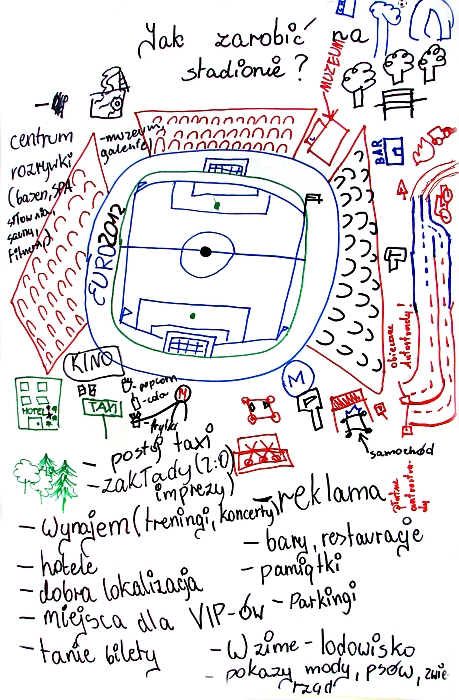 Jak zarobić na
stadionie?
MUZEUM
-muzeum,
galerie
centrum
rozrywki
(basen, SPA
siłownia,
sauny,
fitness)
BAR
EURO2012
obiecane
autostrady!
KINO
M
HOTEL
TAXI
-popcorn
-cola
-frytki
samochód
płatne
- postój taxi
- zakłady (2:0)
imprezy)
- reklama
- wynajem (treningi, koncerty
- bary, restauracje
- hotele
- pamiątki
- dobra lokalizacja
- Parkingi
- miejsca dla VIP-ów
- tanie bilety
- W zime - lodowisko
- pokazy mody, psów, zwie
rząd